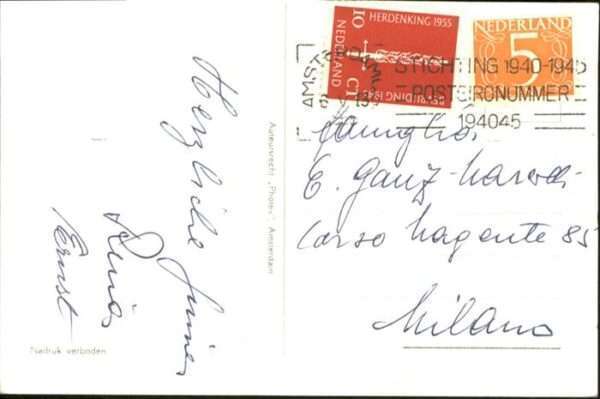 HERDENKING 1955
10 CT
NEDERLAND
BEVRIJDING 1945
NEDERLAND
5
AMST
STICHTING 1940-1945
POSTGIRONUMMER
194045
Herzliche
Ernst
Auteursrecht „Photex“, Amsterdam
Nadruk verboden
E. Ganz-
Corso Magenta 85
Milano